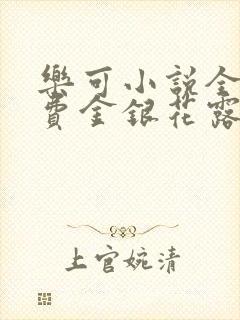 樂可小說全
費金銀花露
上官婉清